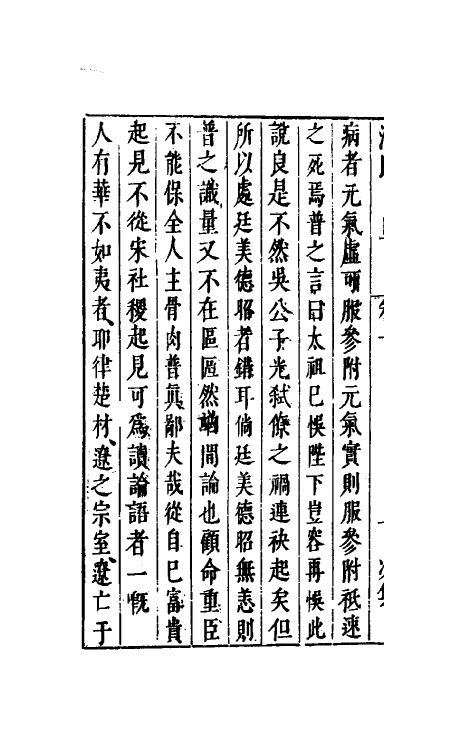 病者元氣虛可服參附元氣實則服參附祇速
之死焉普之言曰太祖已悞陛下豈容再悞此
說良是不然吳公子光弒僚之禍連袂起矣但
所以處廷美德昭者錯耳倘廷美德昭無恙則
普之識量又不在區區然猶閒論也顧命重臣
不能保全人主骨肉普真鄙夫哉從自已富貴
起見不從宋社稷起見可爲讀論語者一慨
人有華不如夷者耶律楚材遼之宗室遼亡于